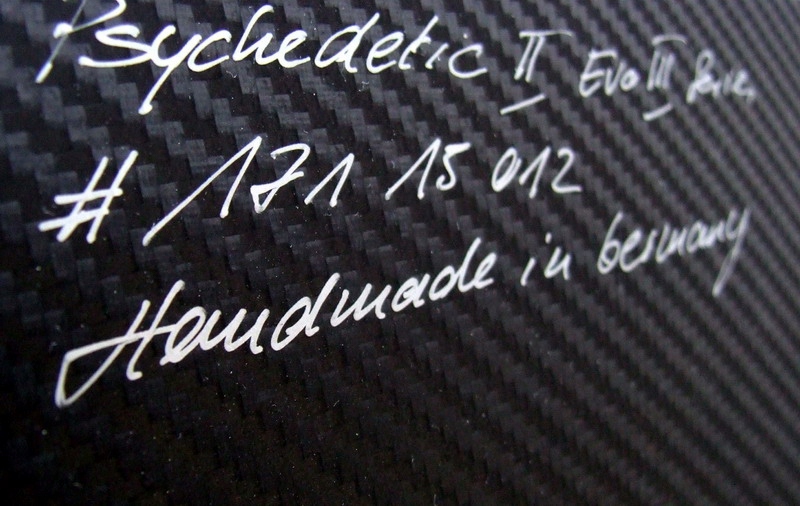 Psychedelic II Evo III Serie
# 171 15 012
Handmade in Germany